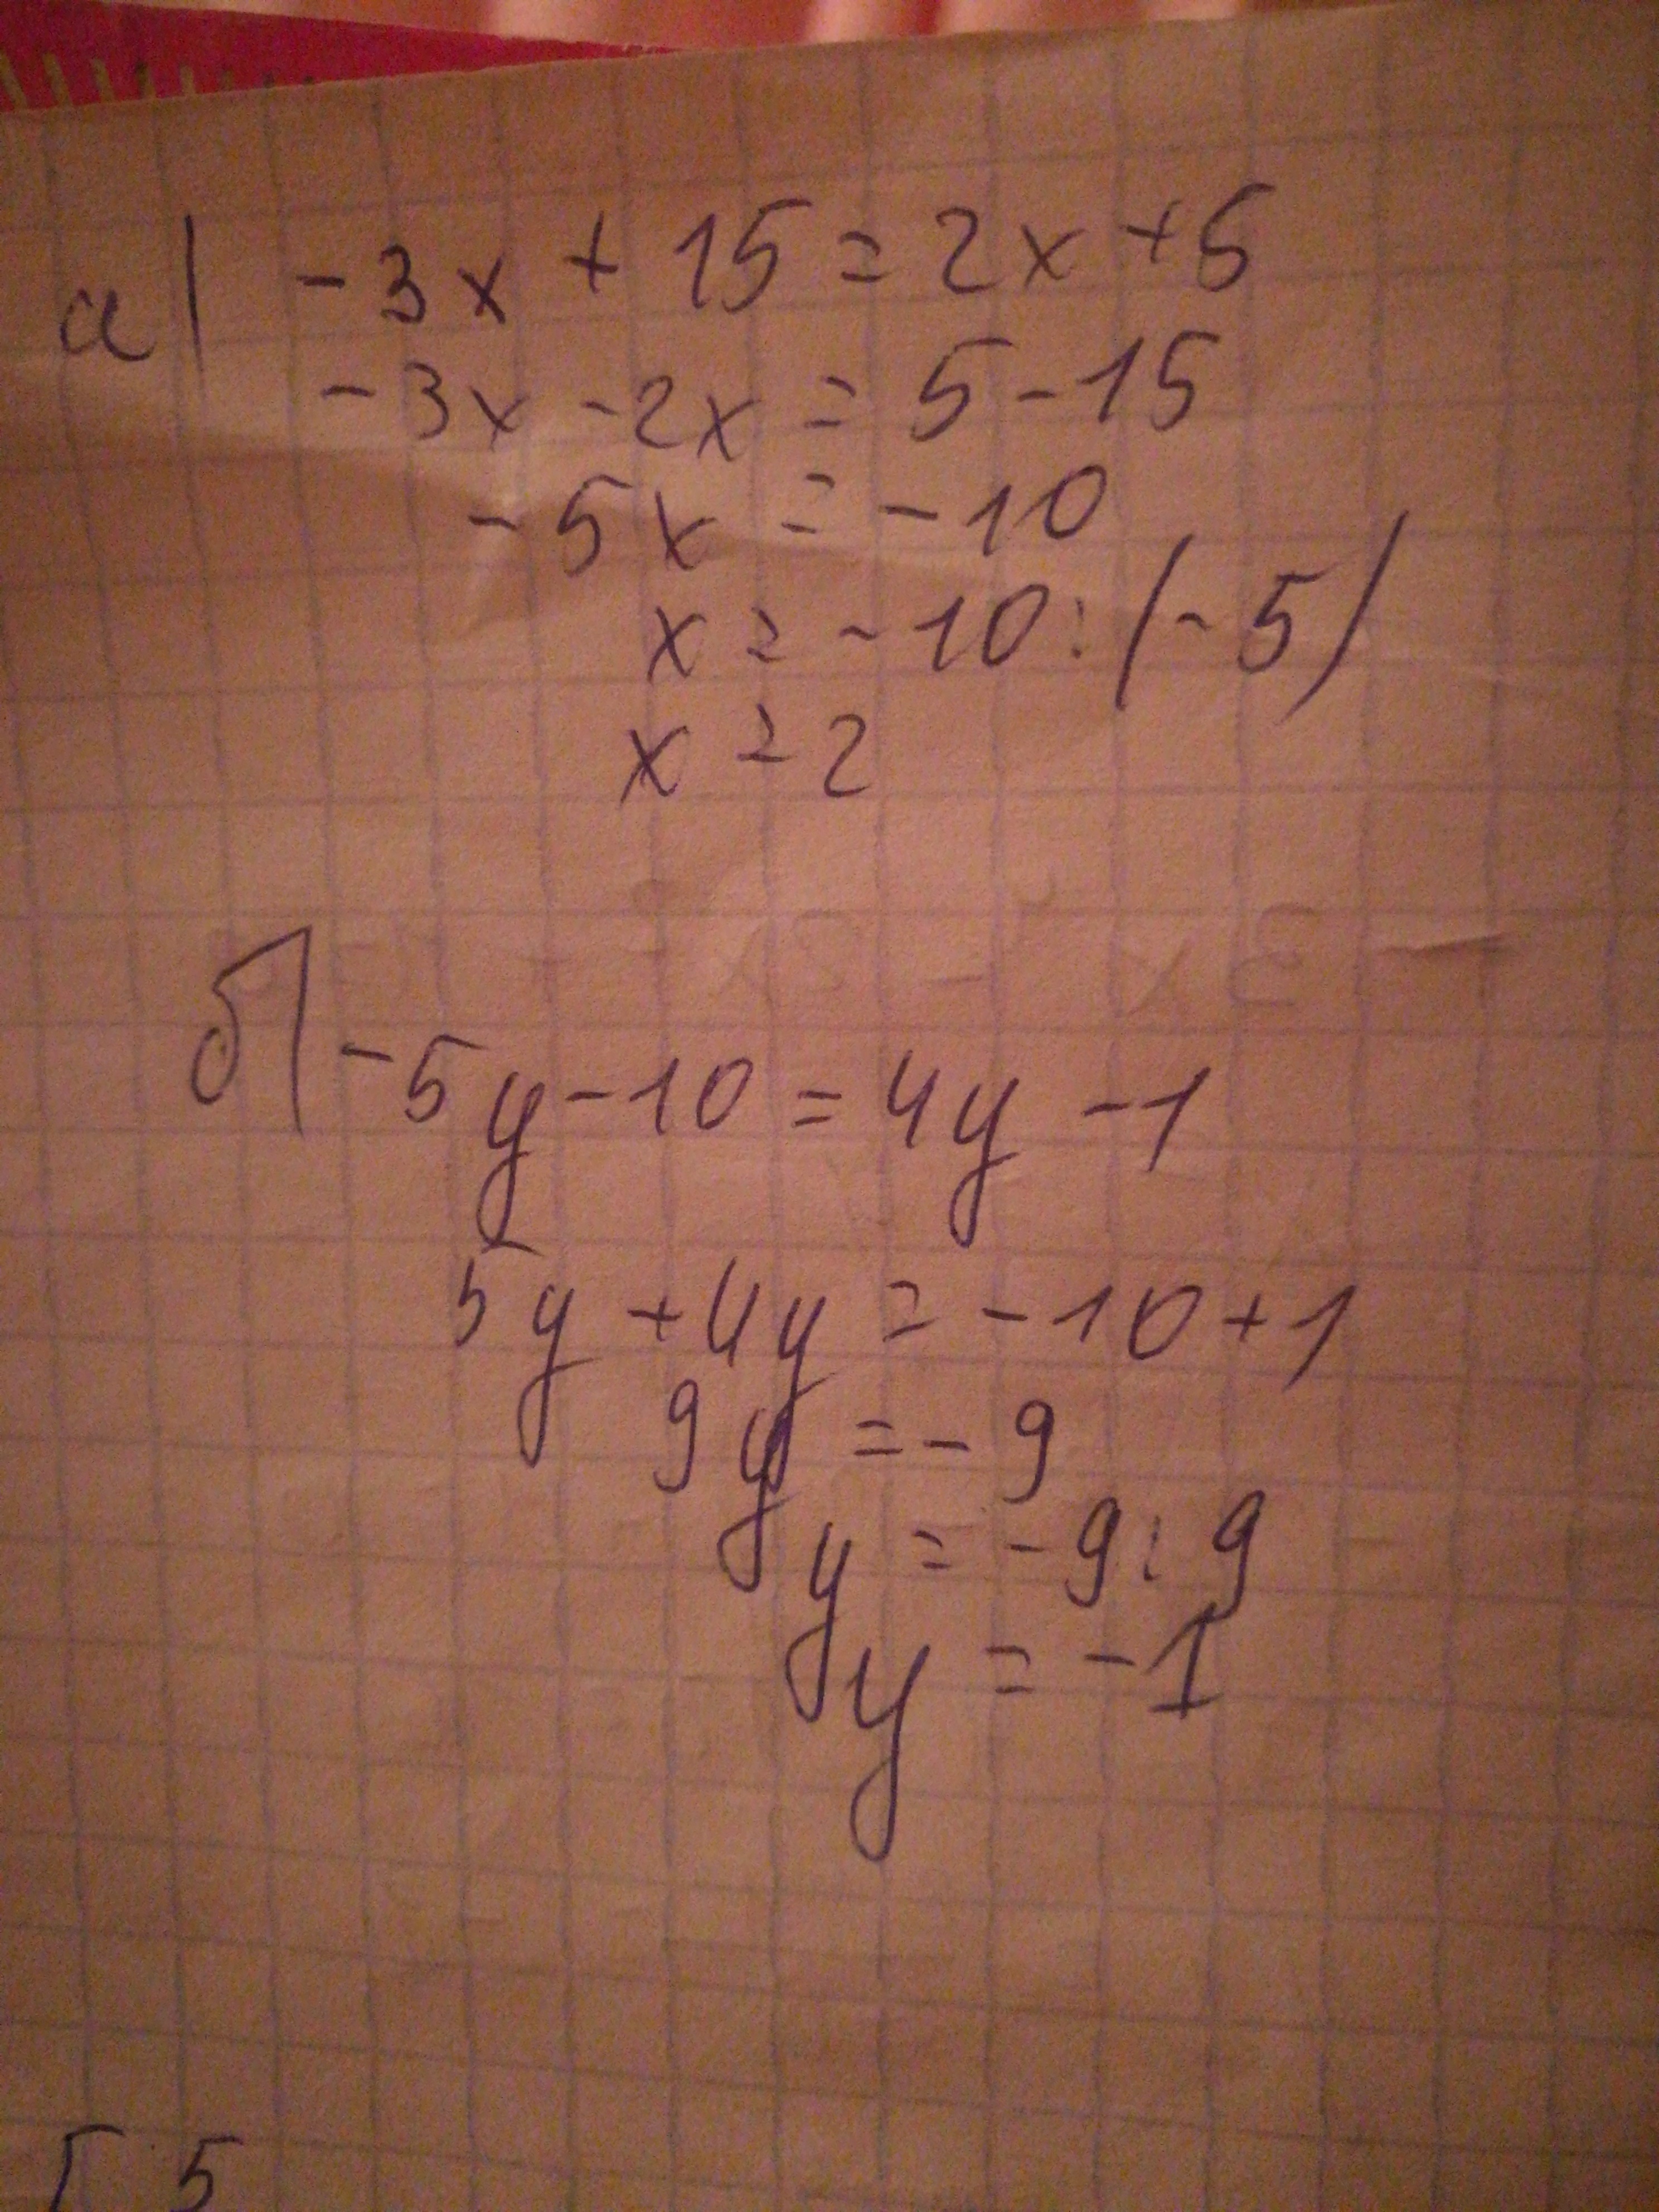 а) -3x + 15 = 2x + 5
-3x - 2x = 5 - 15
-5x = -10
x = -10 : (-5)
x = 2
б) -5y - 10 = 4y - 1
5y + 4y = -10 + 1
9y = -9
y = -9 : 9
y = -1
5